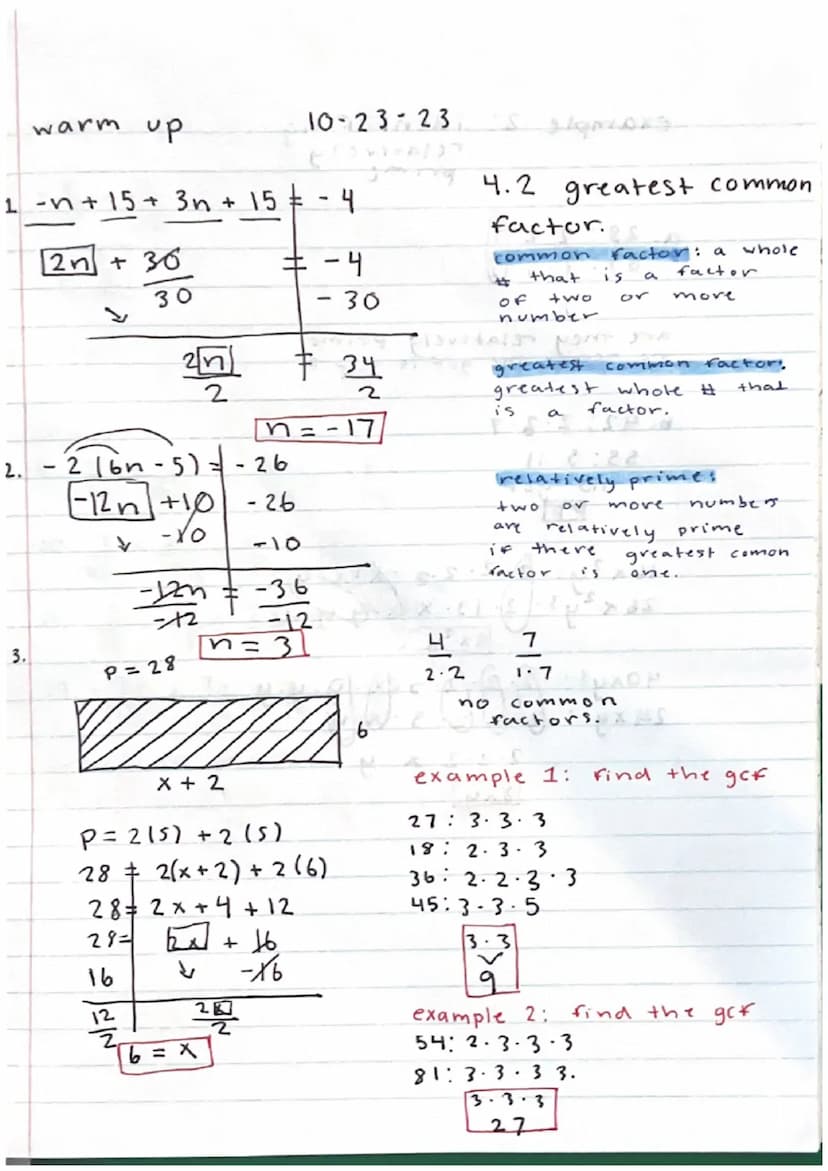 warm up 10-23-23
1 -n + 15 + 3n + 15 = - 4
2n + 30 = - 4
30 - 30
2n = 34
2 2
n = -17
2. - 2 (6n - 5) = - 26
-12n +10 - 26
-10 -10
-12n = -36
-12 -12
n = 3
3.
P = 28
6
x + 2
P = 2(s) + 2(s)
28 = 2(x + 2) + 2(6)
28 = 2x + 4 + 12
28 = 2x + 16
16 -16
12 2x
2 2
6 = x
4.2 greatest common
factor.
common factor: a whole
# that is a factor
of two or more
number
greatest common factor:
greatest whole # that
is a factor.
relatively prime:
two or more numbers
are relatively prime
if there greatest comon
factor is one.
4 7
2·2 1·7
no common
factors.
example 1: find the gcf
27: 3·3·3
18: 2·3·3
36: 2·2·3·3
45: 3·3·5
3·3
9
example 2: find the gcf
54: 2·3·3·3
81: 3·3·3 3.
3·3·3
27